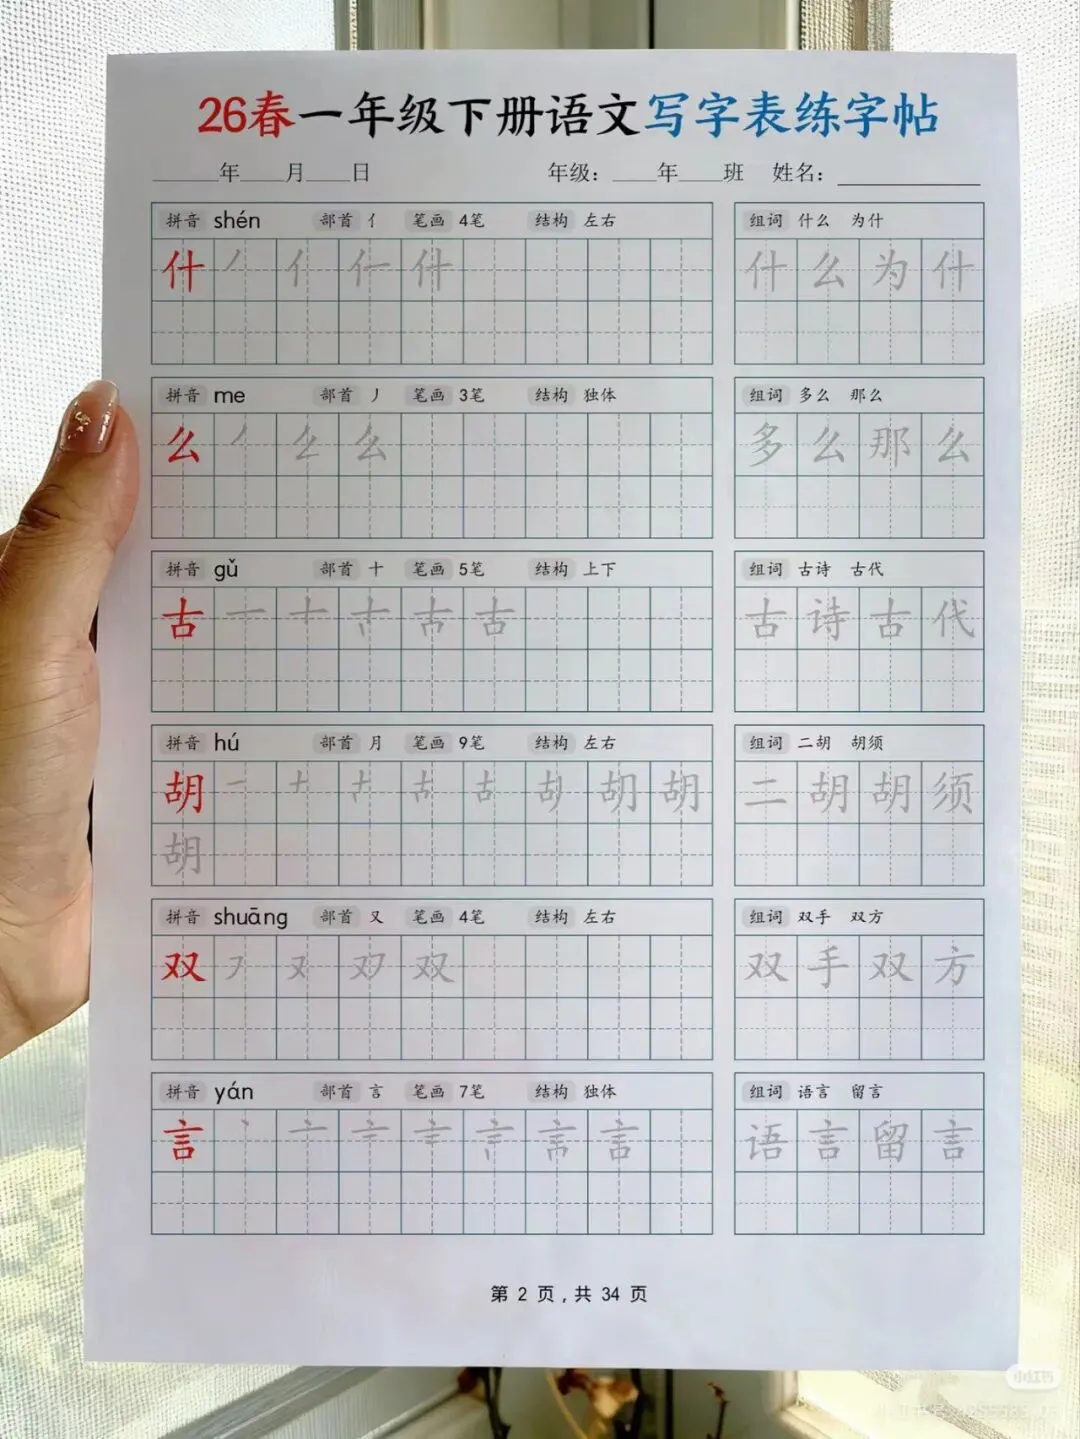 26春一年级下册语文写字表练字帖
____年____月____日 年级：____年____班 姓名：__________
拼音 shén 部首 亻 笔画 4笔 结构 左右
组词 什么 为什
什 丿 亻 什
什 么 为 什
拼音 me 部首 丿 笔画 3笔 结构 独体
组词 多么 那么
么 丿 么
多 么 那 么
拼音 gǔ 部首 十 笔画 5笔 结构 上下
组词 古诗 古代
古 一 十 古 古
古 诗 古 代
拼音 hú 部首 月 笔画 9笔 结构 左右
组词 二胡 胡须
胡 一 十 古 胡 胡
二 胡 胡 须
胡
拼音 shuāng 部首 又 笔画 4笔 结构 左右
组词 双手 双方
双 フ 又 双
双 手 双 方
拼音 yán 部首 言 笔画 7笔 结构 独体
组词 语言 留言
言 丶 亠 言
语 言 留 言
第 2 页，共 34 页
小红书